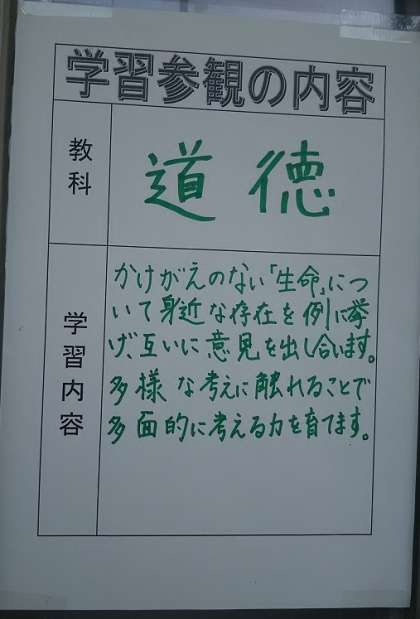 学習参観の内容
教科
道徳
学習内容
かけがえのない「生命」につ
いて身近な存在を例に挙
げ、互いに意見を出し合います。
多様な考えに触れることで
多面的に考える力を育てます。